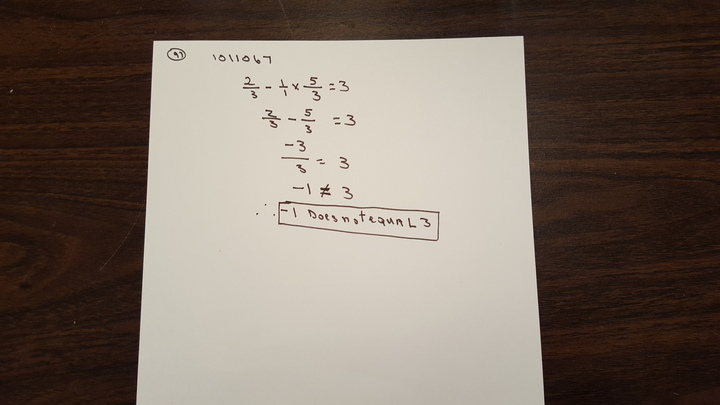 97 1011067
2/3 - 1/1 × 5/3 = 3
2/3 - 5/3 = 3
-3/3 = 3
-1 ≠ 3
∴ -1 Does not equal 3